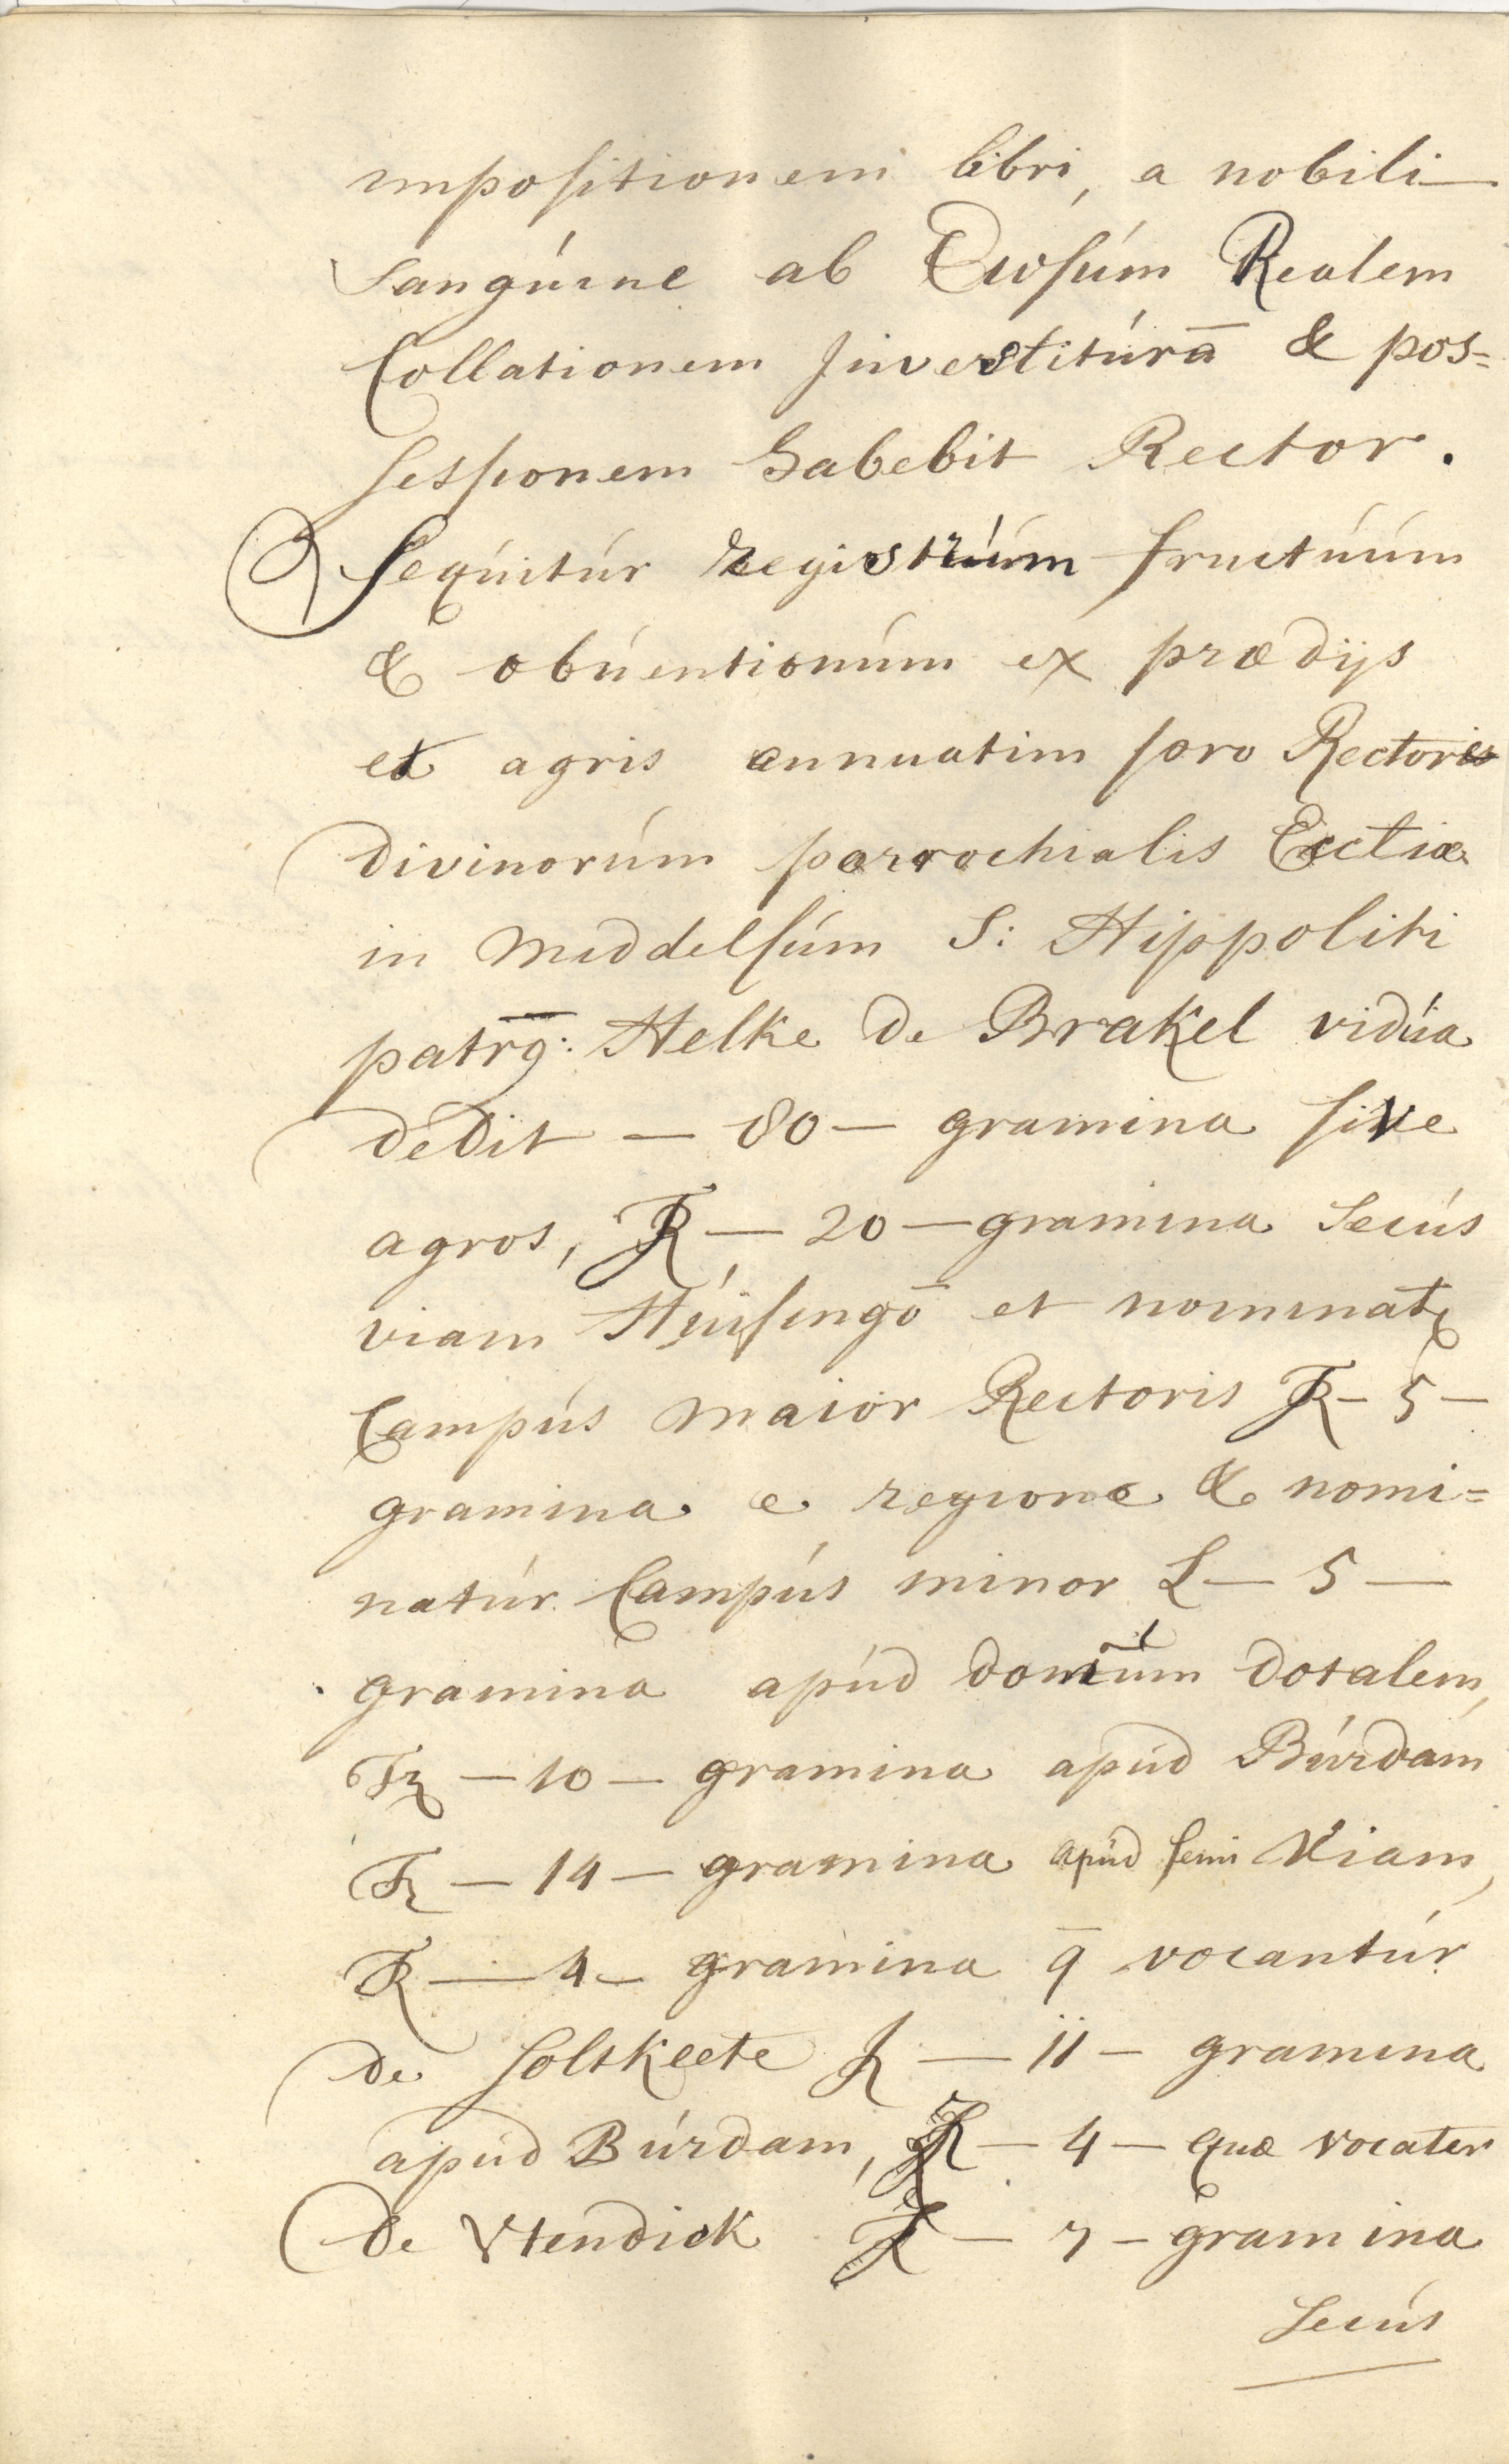 impositionem libri, a nobili
sangúine ab Ewsúm Realem
Collationem Jnvestitúrā & pos=
sessionem habebit Rector.
Seqúitúr registrúm fructúúm
& obúentionúm ex prædijs
et agris annuatim pro Rectoris
divinorúm parrochialis Ecctiæ
in Middelsúm S: Hippoliti
patrg: Helke de Brakel vidúa
dedit — 80 — gramina sive
agros, R — 20 — gramina Secús
viam Húisingō et nominat
Campús maior Rectoris R — 5 —
gramina e regione & nomi=
natúr Campús minor L — 5 —
gramina apúd domúm dotalem,
— 10 — gramina apúd Búrdam
— 14 — gramina apúd semi Viam,
R — 4 — gramina q̄ vocantúr
de Soltkeete R — 11 — gramina
apúd Búrdam, R — 4 — quæ vocater
de Vtendick R — 7 — gramina
Secús